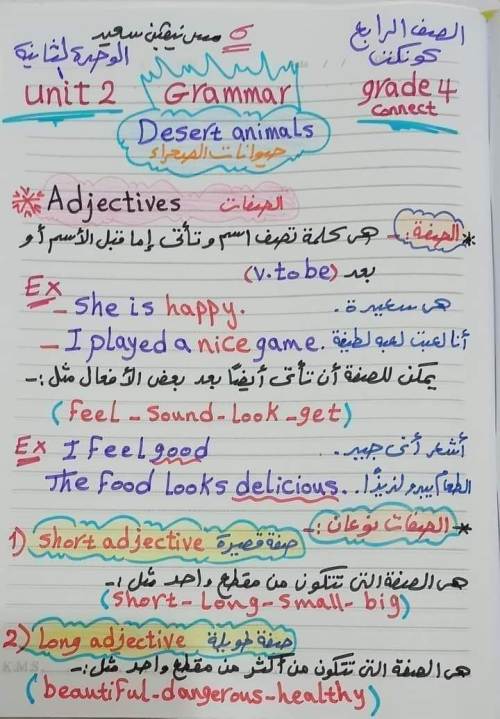 الصف الرابع مس نيفين سعيد
كونكت الوحدة الثانية
unit 2 Grammar grade 4
connect
Desert animals
حيوانات الصحراء
Adjectives الصفات
* الصفة :- هى كلمة تصف اسم وتأتى إما قبل الأسم أو
بعد (v. to be)
Ex - She is happy. هى سعيدة.
- I played a nice game. أنا لعبت لعبه لطيفة
يمكن للصفة أن تأتى أيضًا بعد بعض الأفعال مثل :-
(feel - sound - look - get)
Ex I feel good أشعر أنى جيد.
The food looks delicious. الطعام يبدو لذيذًا..
* الصفات نوعان :-
1) short adjective صفة قصيرة
هى الصفة التى تتكون من مقطع واحد مثل :-
(short - long - small - big)
2) Long adjective صفة طويلة
هى الصفة التى تتكون من أكثر من مقطع واحد مثل :-
(beautiful - dangerous - healthy)
K.M.S.